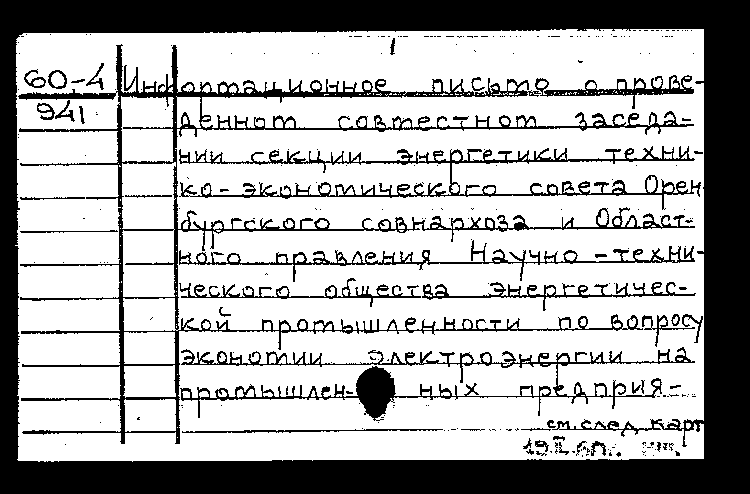 60-4 Информационное письмо о прове-
941 денном совместном заседа-
нии секции энергетики техни-
ко-экономического совета Орен
бургского совнархоза и Област-
ного правления Научно-техни-
ческого общества энергетичес-
кой промышленности по вопросу
экономии электроэнергии на
промышлен- ных предприя-
см. след. карт
19.II.60г.